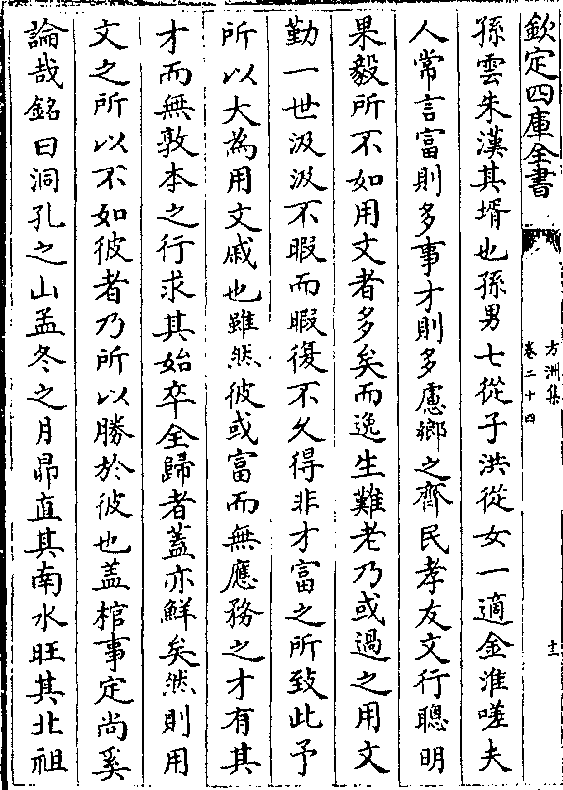 欽定四庫全書
方洲集
卷二十四
十二
孫雲朱漢其壻也孫男七從子洪從女一適金淮嗟夫
人常言富則多事才則多慮鄉之齊民孝友文行聰明
果毅所不如用文者多矣而逸生難老乃或過之用文
勤一世汲汲不暇而暇復不久得非才富之所致此予
所以大為用文戚也雖然彼或富而無應務之才有其
才而無敦本之行求其始卒全歸者蓋亦鮮矣然則用
文之所以不如彼者乃所以勝於彼也盖棺事定尚奚
論哉銘曰洞孔之山孟冬之月昴直其南水旺其北祖